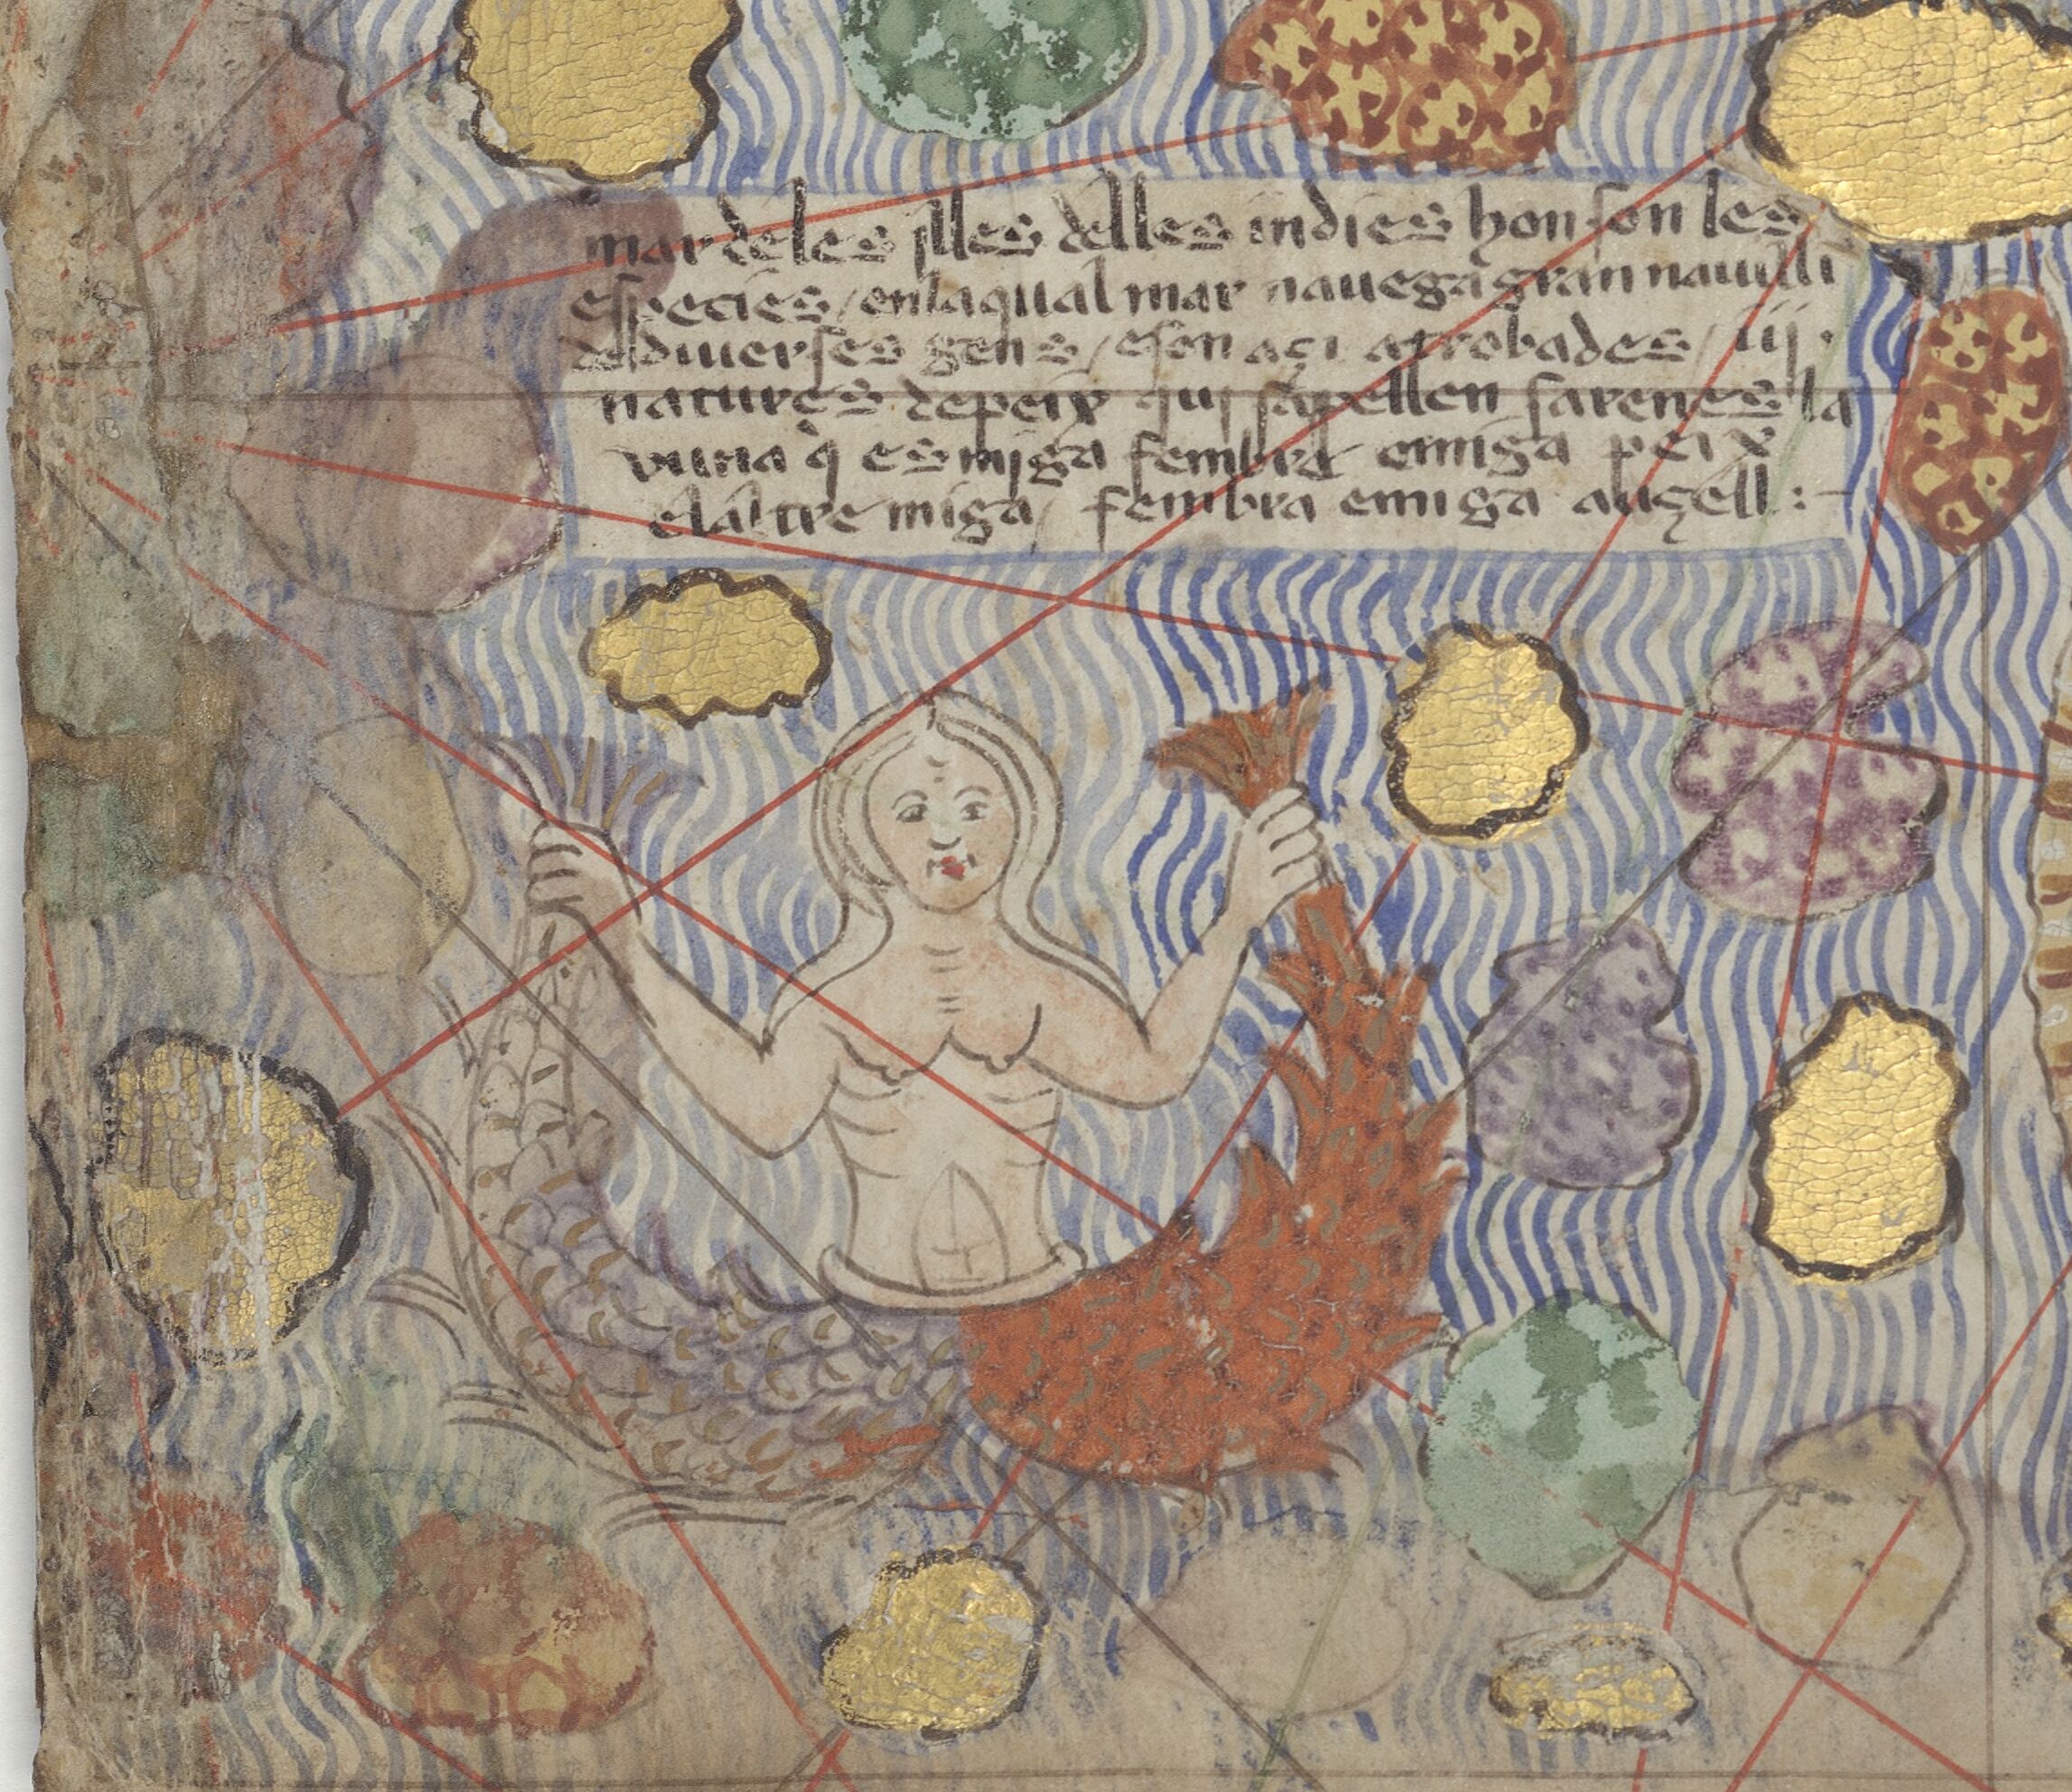 mar deles illes delles indies hon son les
especies / enla qual mar nauega gran nauilli
de diuerses gens / eson açi atrobades / iij ·
natures de peix qui sapellen sarenes la
vuna q̀ es miga fembra emiga peix
elaltre miga / fembra emiga auçell :-